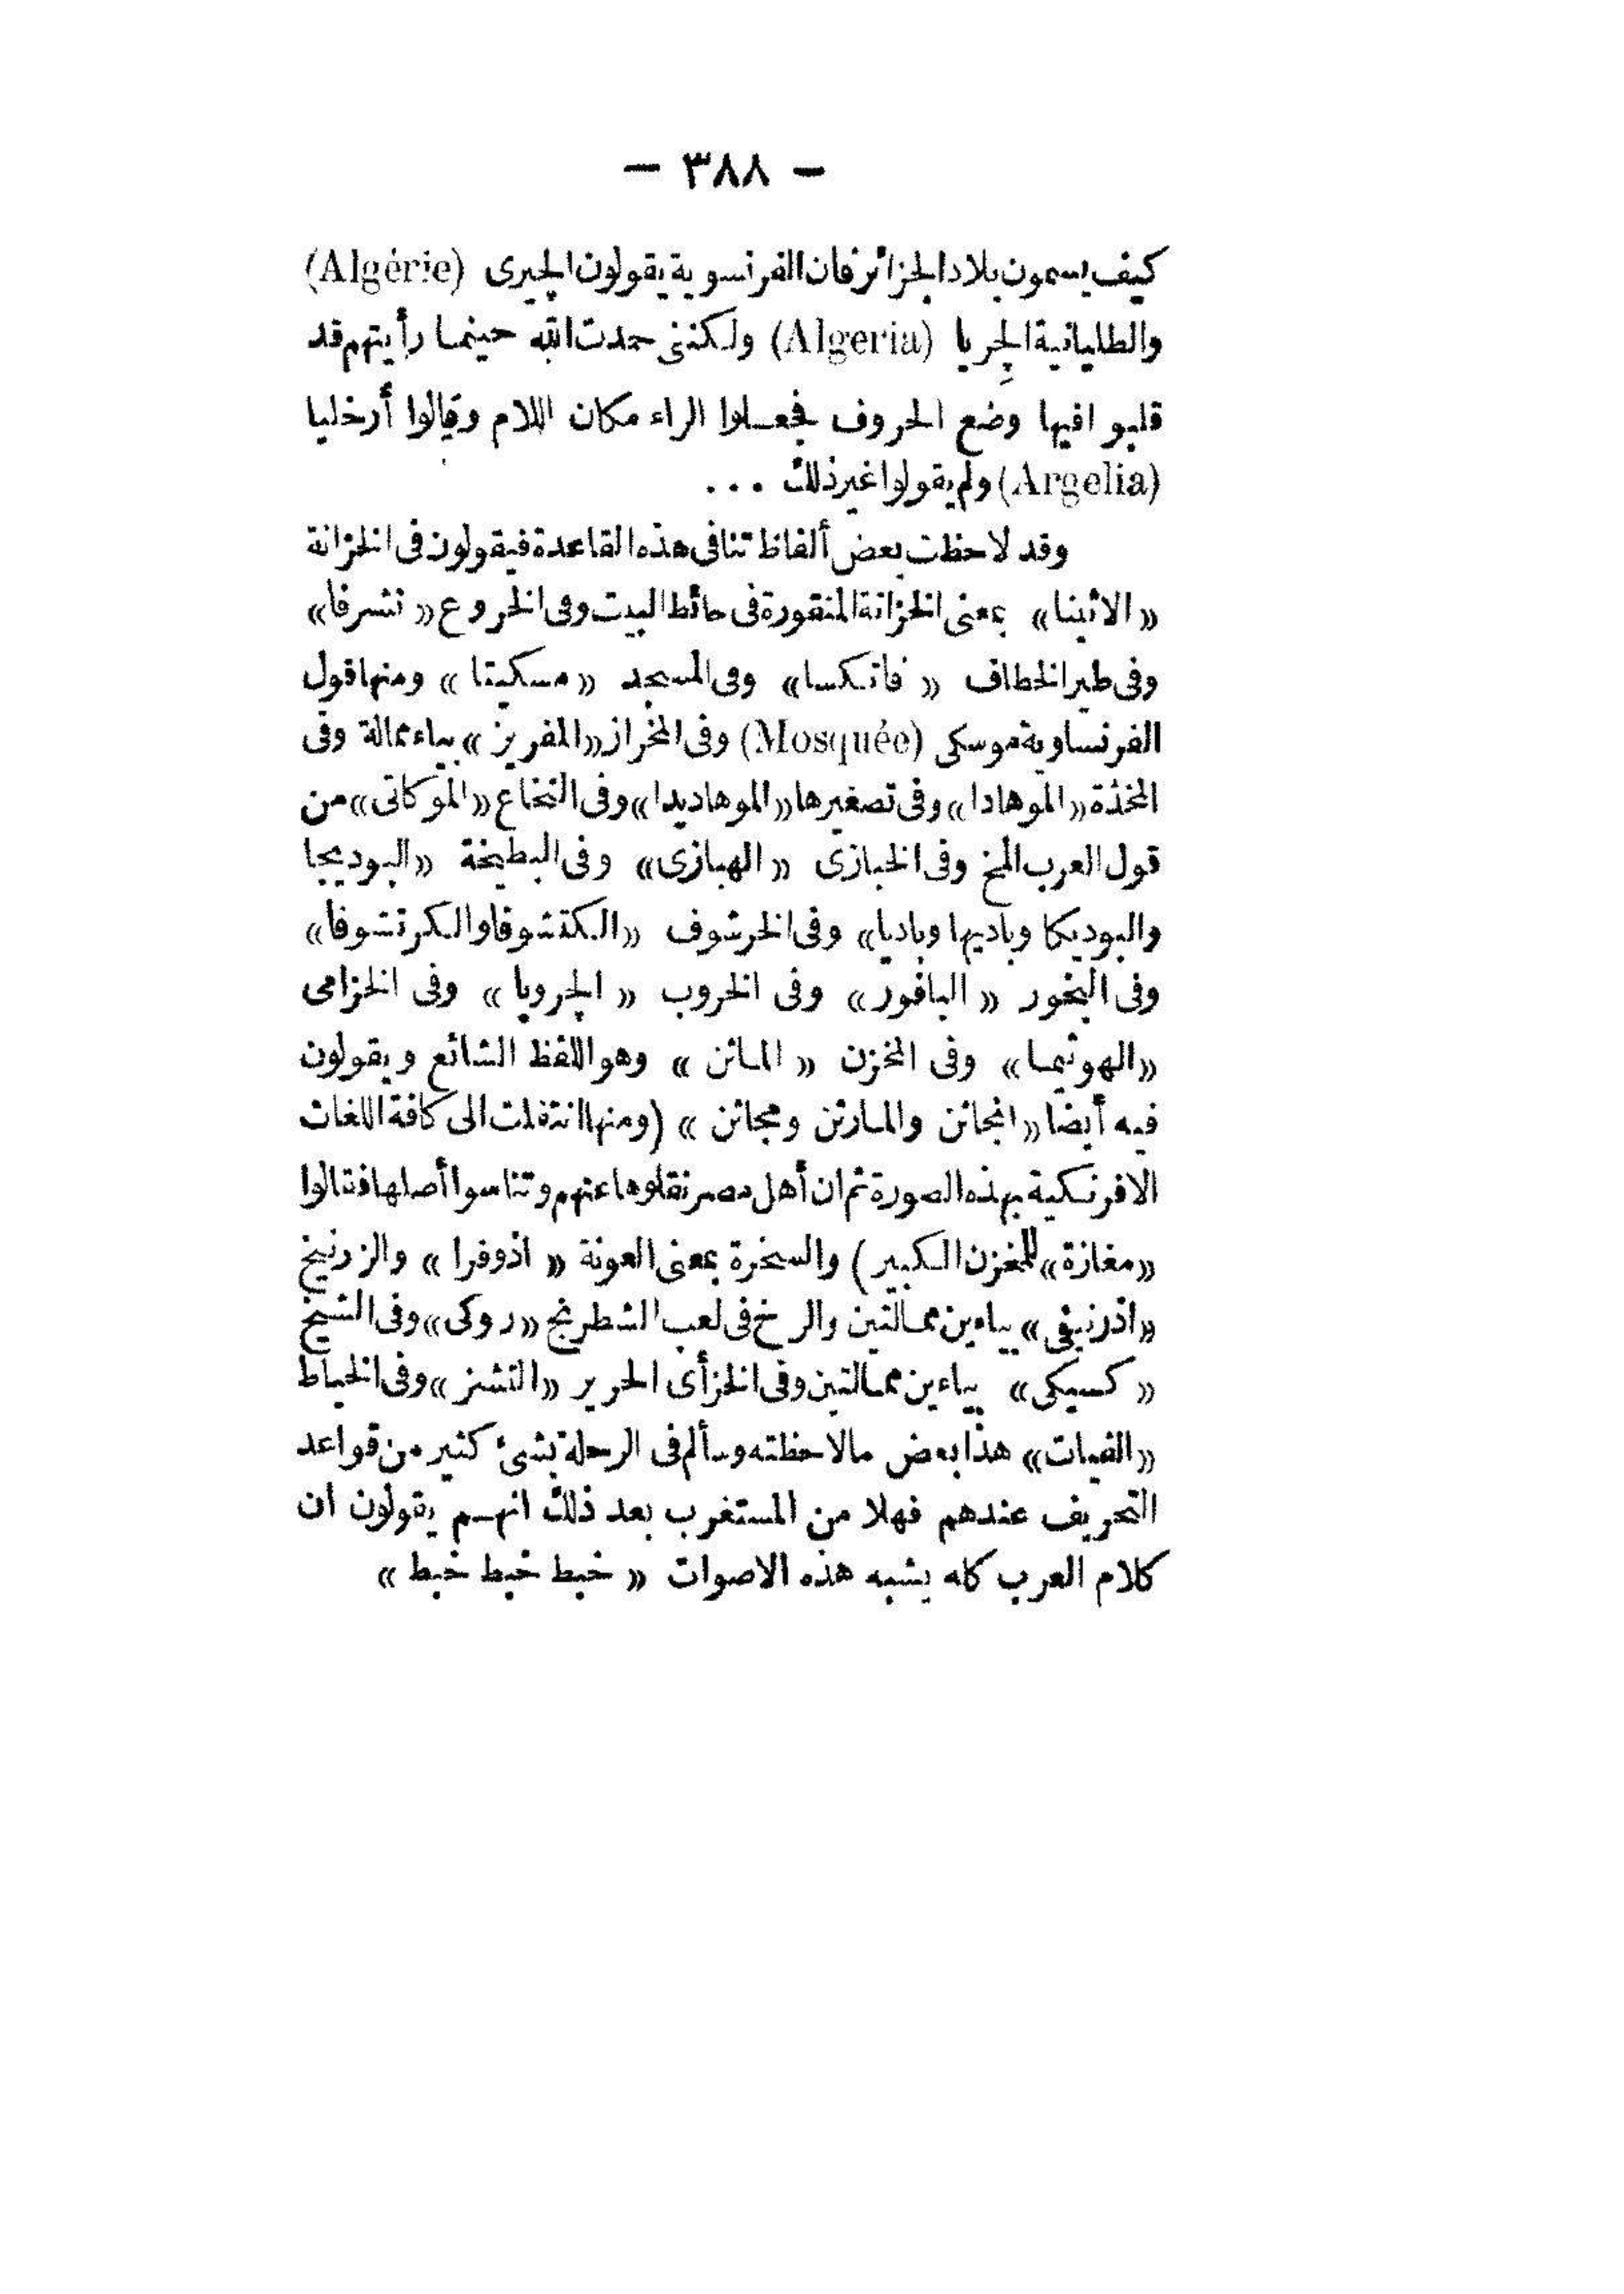 — ٣٨٨ —
كيف يسمون بلاد الجزائر فان الفرنسوية يقولون الجيرى (Algérie)
والطليانية الجِريا (Algeria) ولكننى حمدت الله حينما رأيتهم قد
قلبوا فيها وضع الحروف فجعلوا الراء مكان اللام وقالوا أرخليا
(Argelia) ولم يقولوا غير ذلك ...
وقد لاحظت بعض ألفاظ تنافى هذه القاعدة فيقولون فى الخزانة
«الاثينا» بمعنى الخزانة المنقورة فى حائط البيت وفى الخروع «تشرفا»
وفى طير الخطاف «فاتكسا» وفى المسجد «مسكيتا» ومنها قول
الفرنساوية موسكى (Mosquée) وفى المخراز «المفريز» بياء ممالة وفى
المخدة «الموهادا» وفى تصغيرها «الموهاديدا» وفى النخاع «الموكاتى» من
قول العرب المخ وفى الخبازى «الهبازى» وفى البطيخة «البوديجا
والبوديكا وباديها وباديا» وفى الخرشوف «الكتشوفا والكرتشوفا»
وفى البخور «البافور» وفى الخروب «الجروبا» وفى الخزامى
«الهوثيما» وفى المخزن «الماثن» وهو اللفظ الشائع ويقولون
فيه أيضا «انجاثن والمارثن ومجاثن» (ومنها انتقلت الى كافة اللغات
الافرنكية بهذه الصورة ثم ان أهل مصر نقلوها عنهم وتناسوا أصلها فقالوا
«مغازة» للمخزن الكبير) والسخرة بمعنى العونة «اذوفرا» والزرنيخ
«اذرنيفى» بياءين ممالتين والرخ فى لعب الشطرنج «روكى» وفى الشيخ
«كسيكى» بياءين ممالتين وفى الخز أى الحرير «التشز» وفى الخياط
«الفيات» هذا بعض ما لاحظته وسألم فى الرحلة بشئ كثير من قواعد
التحريف عندهم فهلا من المستغرب بعد ذلك انهم يقولون ان
كلام العرب كله يشبه هذه الاصوات «خبط خبط خبط»